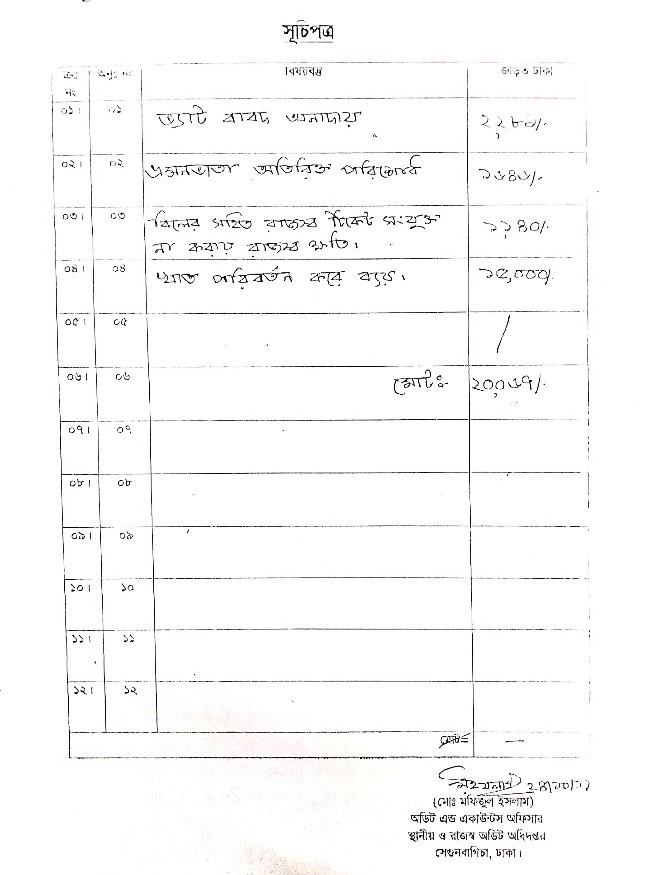 সূচিপত্র
ক্রঃ নং অনুঃ নং বিষয়বস্তু জড়িত টাকা
০১। ০১ ভ্যাট বাবদ অনাদায়
০২। ০২ ভ্রমনভাতা অতিরিক্ত পরিশোধ
০৩। ০৩ বিলের সহিত রাজস্ব টিকেট সংযুক্ত
না করায় রাজস্ব ক্ষতি।
০৪। ০৪ খাত পরিবর্তন করে ব্যয়। ১৫,০০০/-
০৫। ০৫ /
০৬। ০৬ মোটঃ- ২০,০৬৭/-
০৭। ০৭
০৮। ০৮
০৯। ০৯
১০। ১০
১১। ১১
১২। ১২
মোট= —
(মোঃ মফিজুল ইসলাম)
অডিট এন্ড একাউন্টস অফিসার
স্থানীয় ও রাজস্ব অডিট অধিদপ্তর
সেগুনবাগিচা, ঢাকা।